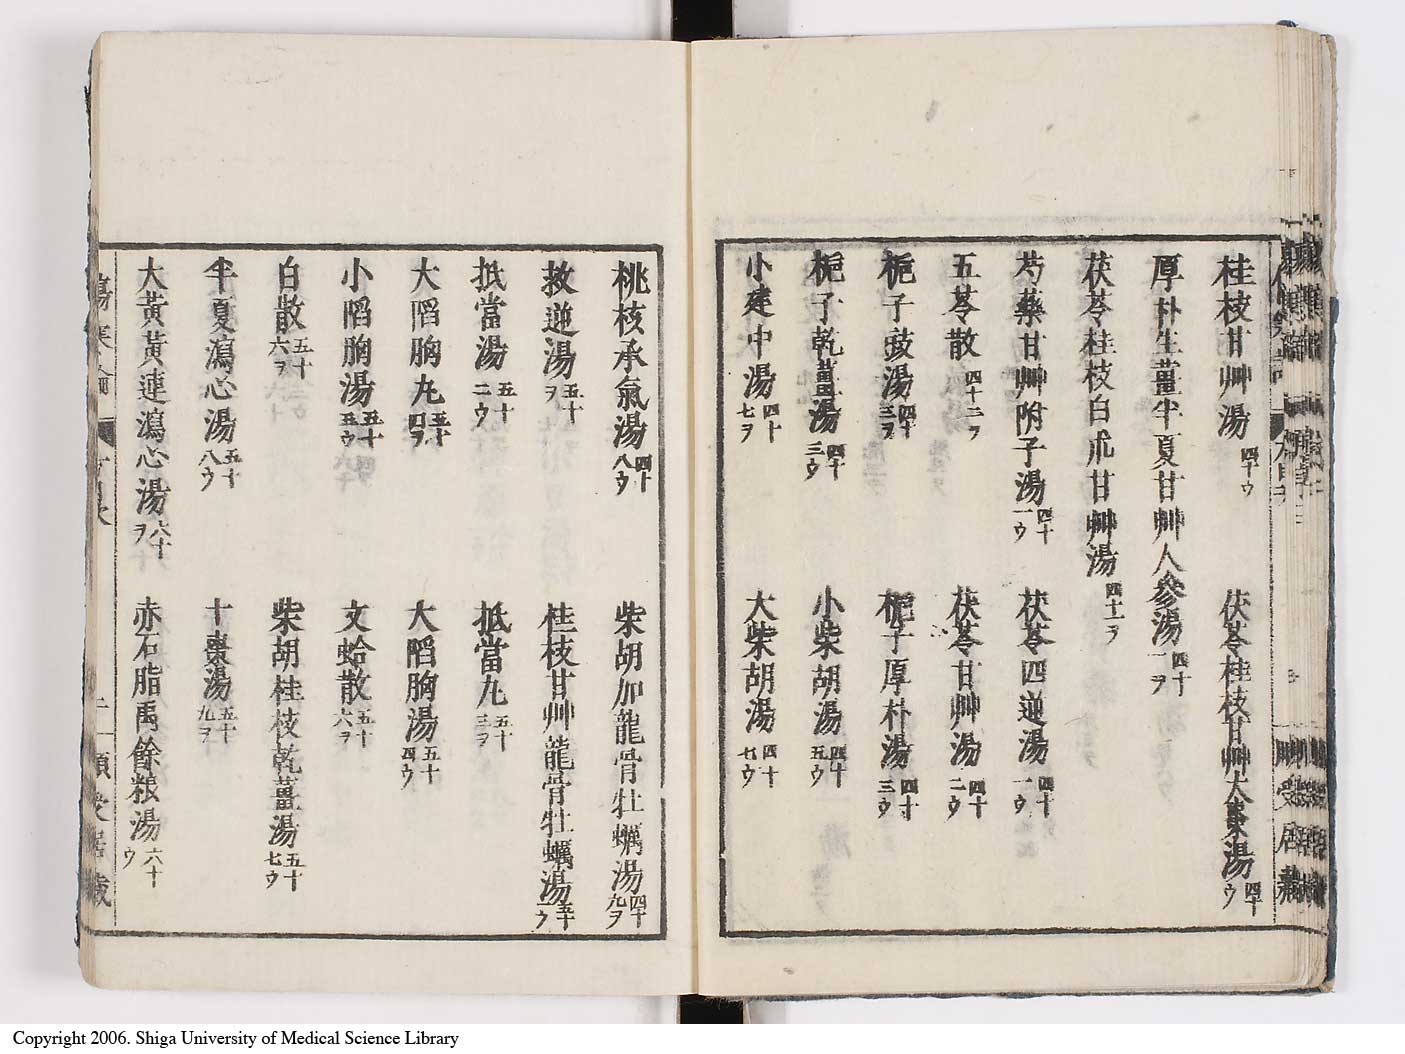 桂枝甘艸湯 四十ウ 茯苓桂枝甘艸大棗湯 四十ウ
厚朴生薑半夏甘艸人參湯 四十一ヲ
茯苓桂枝白朮甘艸湯 四十一ヲ
芍藥甘艸附子湯 四十一ウ 茯苓四逆湯 四十一ウ
五苓散 四十二ヲ 茯苓甘艸湯 四十二ウ
梔子豉湯 四十三ヲ 梔子厚朴湯 四十三ウ
梔子乾薑湯 四十三ウ 小柴胡湯 四十五ウ
小建中湯 四十七ヲ 大柴胡湯 四十七ウ
桃核承氣湯 四十八ウ 柴胡加龍骨牡蠣湯 四十九ヲ
救逆湯 五十ヲ 桂枝甘艸龍骨牡蠣湯 五十一ウ
抵當湯 五十二ウ 抵當丸 五十三ヲ
大陷胸丸 五十四ヲ 大陷胸湯 五十四ウ
小陷胸湯 五十五ウ 文蛤散 五十六ヲ
白散 五十六ヲ 柴胡桂枝乾薑湯 五十七ウ
半夏瀉心湯 五十八ウ 十棗湯 五十九ヲ
大黃黃連瀉心湯 六十ヲ 赤石脂禹餘粮湯 六十ウ
Copyright 2006. Shiga University of Medical Science Library